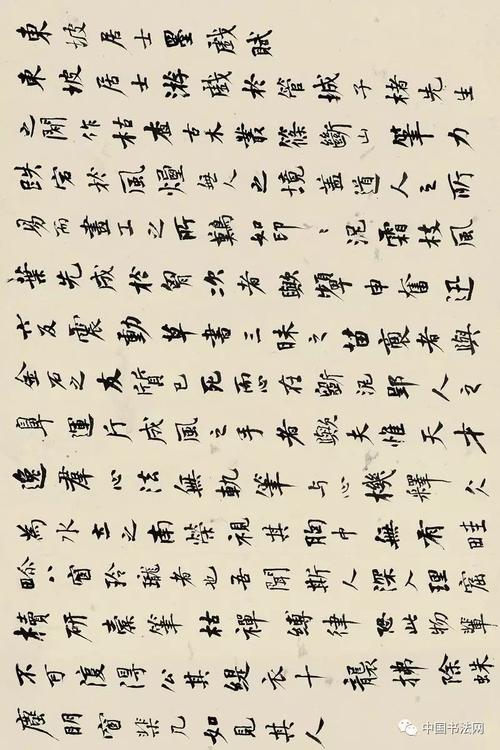 東坡居士墨戲賦
東坡居士游戲於管城子楮先生
之間作枯查古木叢篠斷山筆力
跌宕於風煙無人之境蓋道人之所
易而畫工之所難如印〻泥霜枝風
葉先成於胷次者歟顰申奮迅
六反震動草書三昧之苗裔者與
金石之友質已死而心在斲泥郢人之
鼻運斤成風之手者歟夫惟天才
逸羣心法無軌筆与心機釋仌
為水立之南榮視其胸中無有畦
畛八窗玲瓏者也吾聞斯人深入理窟
櫝研囊筆枯禪縛律恐此物輩
不可復得公其緹衣十襲拂除蛛
塵明窗棐几如見其人
中国书法网